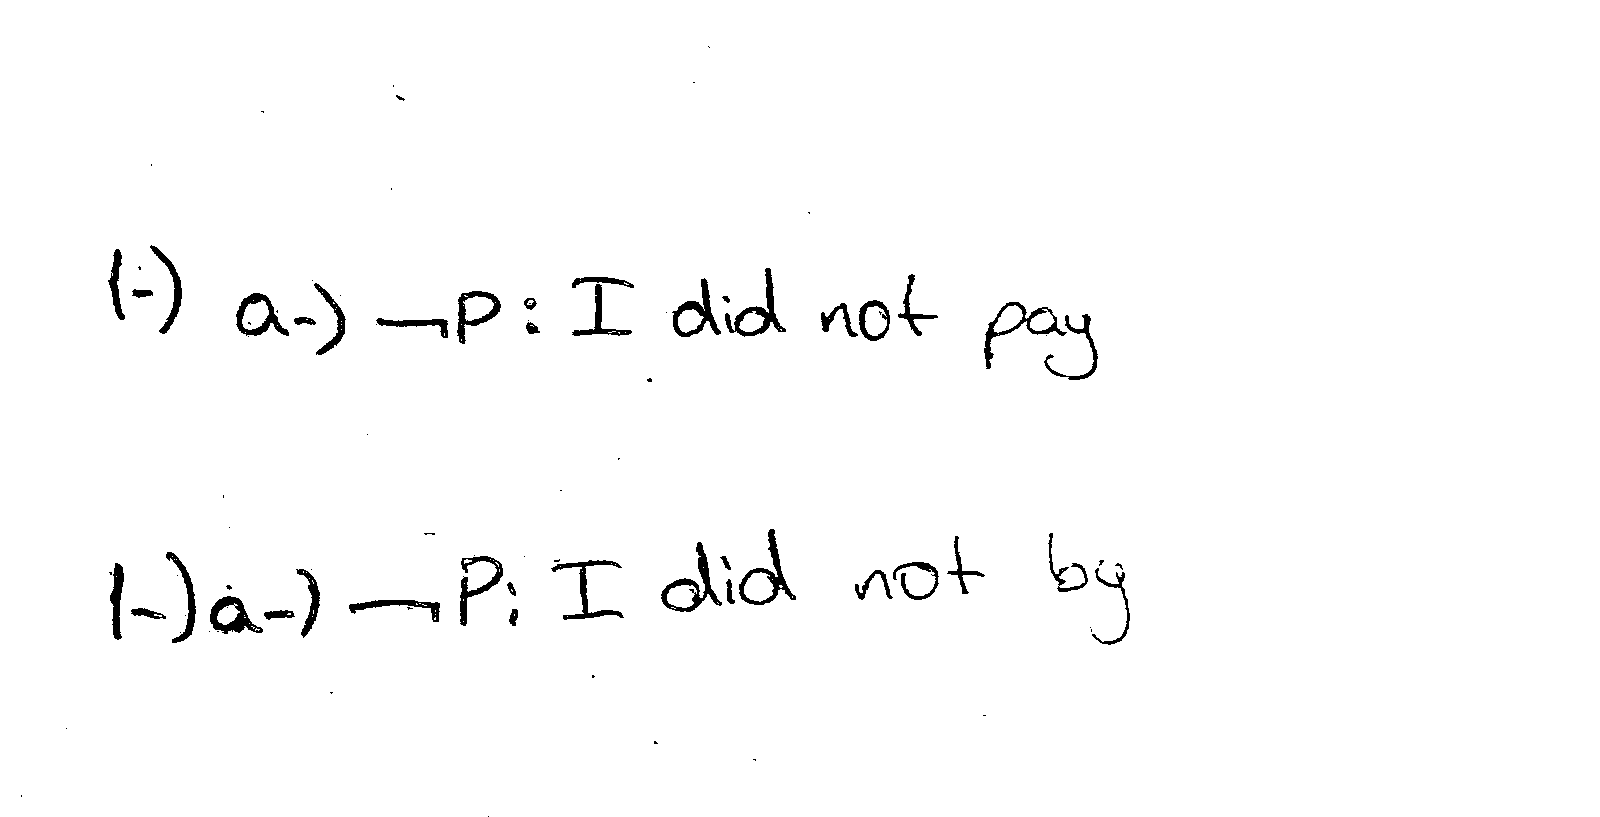 1-) a-) ¬P: I did not pay
1-) a-) ¬P: I did not by